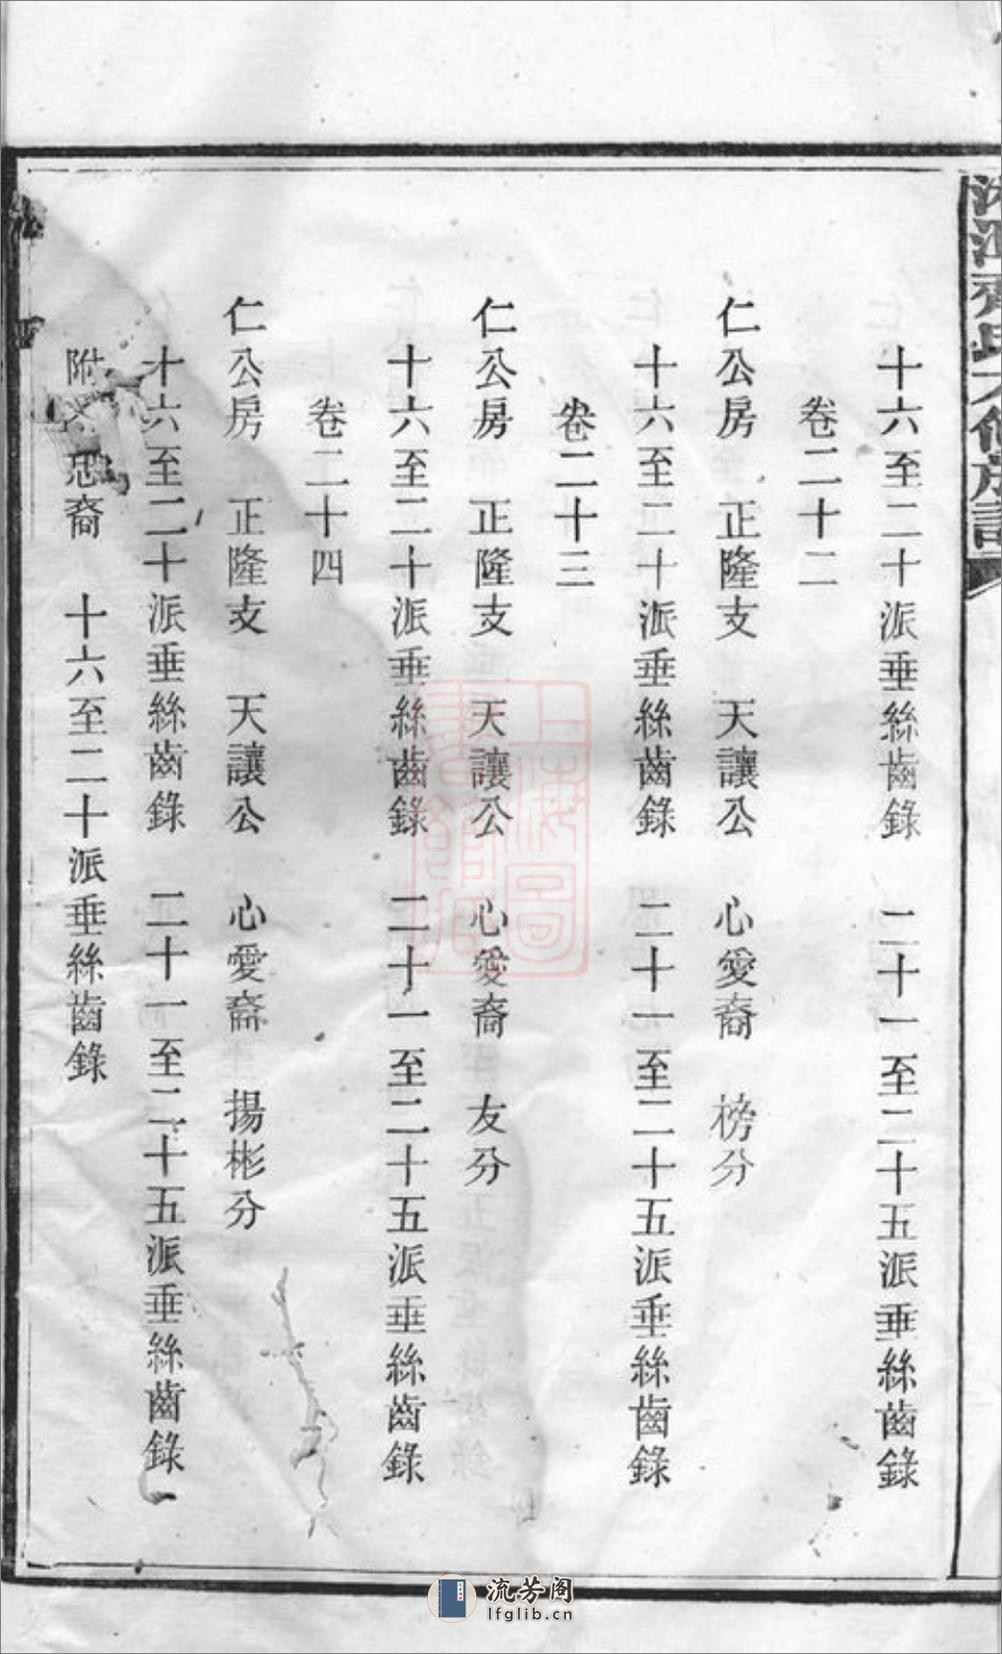 十六至二十派垂絲齒錄　二十一至二十五派垂絲齒錄
卷二十二
仁公房　正隆支　天讓公　心愛裔　榜分
十六至二十派垂絲齒錄　二十一至二十五派垂絲齒錄
卷二十三
仁公房　正隆支　天讓公　心愛裔　友分
十六至二十派垂絲齒錄　二十一至二十五派垂絲齒錄
卷二十四
仁公房　正隆支　天讓公　心愛裔　揚彬分
十六至二十派垂絲齒錄　二十一至二十五派垂絲齒錄
附　裔　十六至二十派垂絲齒錄
上海圖書館藏
流芳阁
lfglib.cn